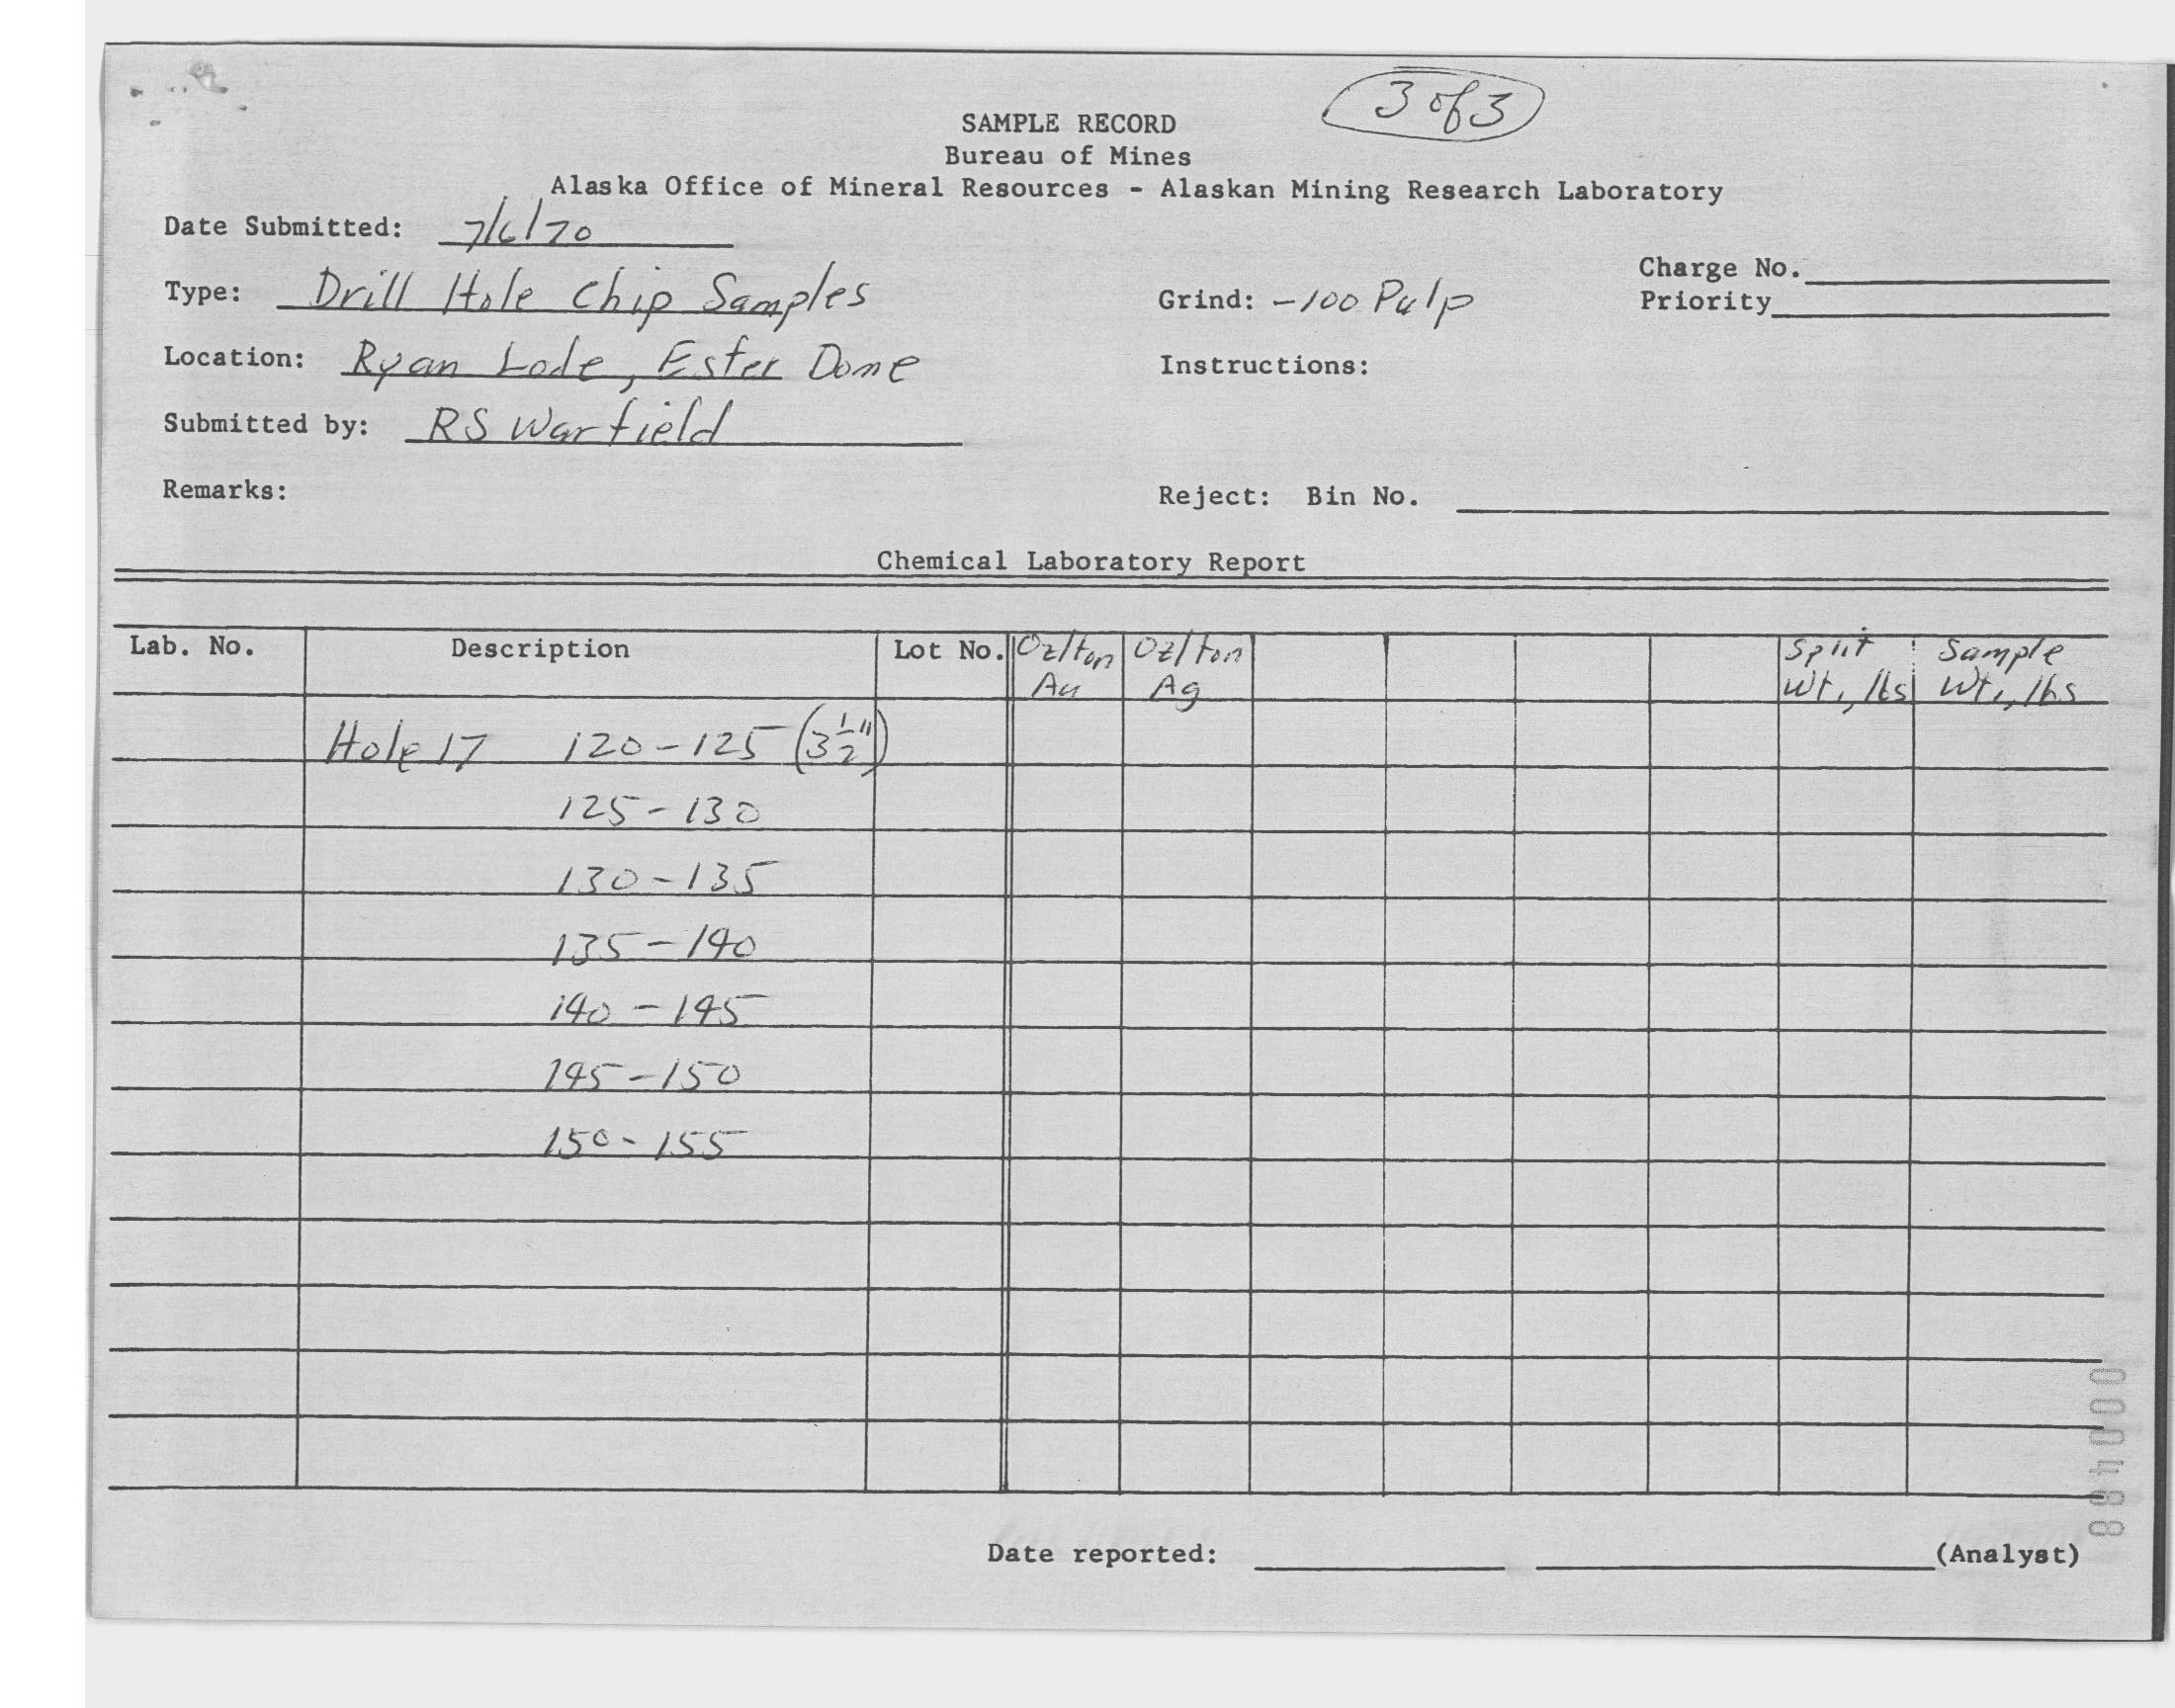 3 of 3
SAMPLE RECORD
Bureau of Mines
Alaska Office of Mineral Resources - Alaskan Mining Research Laboratory
Date Submitted: 7/6/70
Charge No.
Type: Drill Hole Chip Samples
Grind: -100 Pulp
Priority
Location: Ryan Lode, Ester Dome
Instructions:
Submitted by: RS Warfield
Remarks:
Reject: Bin No.
Chemical Laboratory Report
Lab. No. Description Lot No. Oz/ton Au Oz/ton Ag Split Wt., lbs Sample Wt., lbs
Hole 17 120-125 (3 1/2")
125-130
130-135
135-140
140-145
145-150
150-155
Date reported: (Analyst)
000488